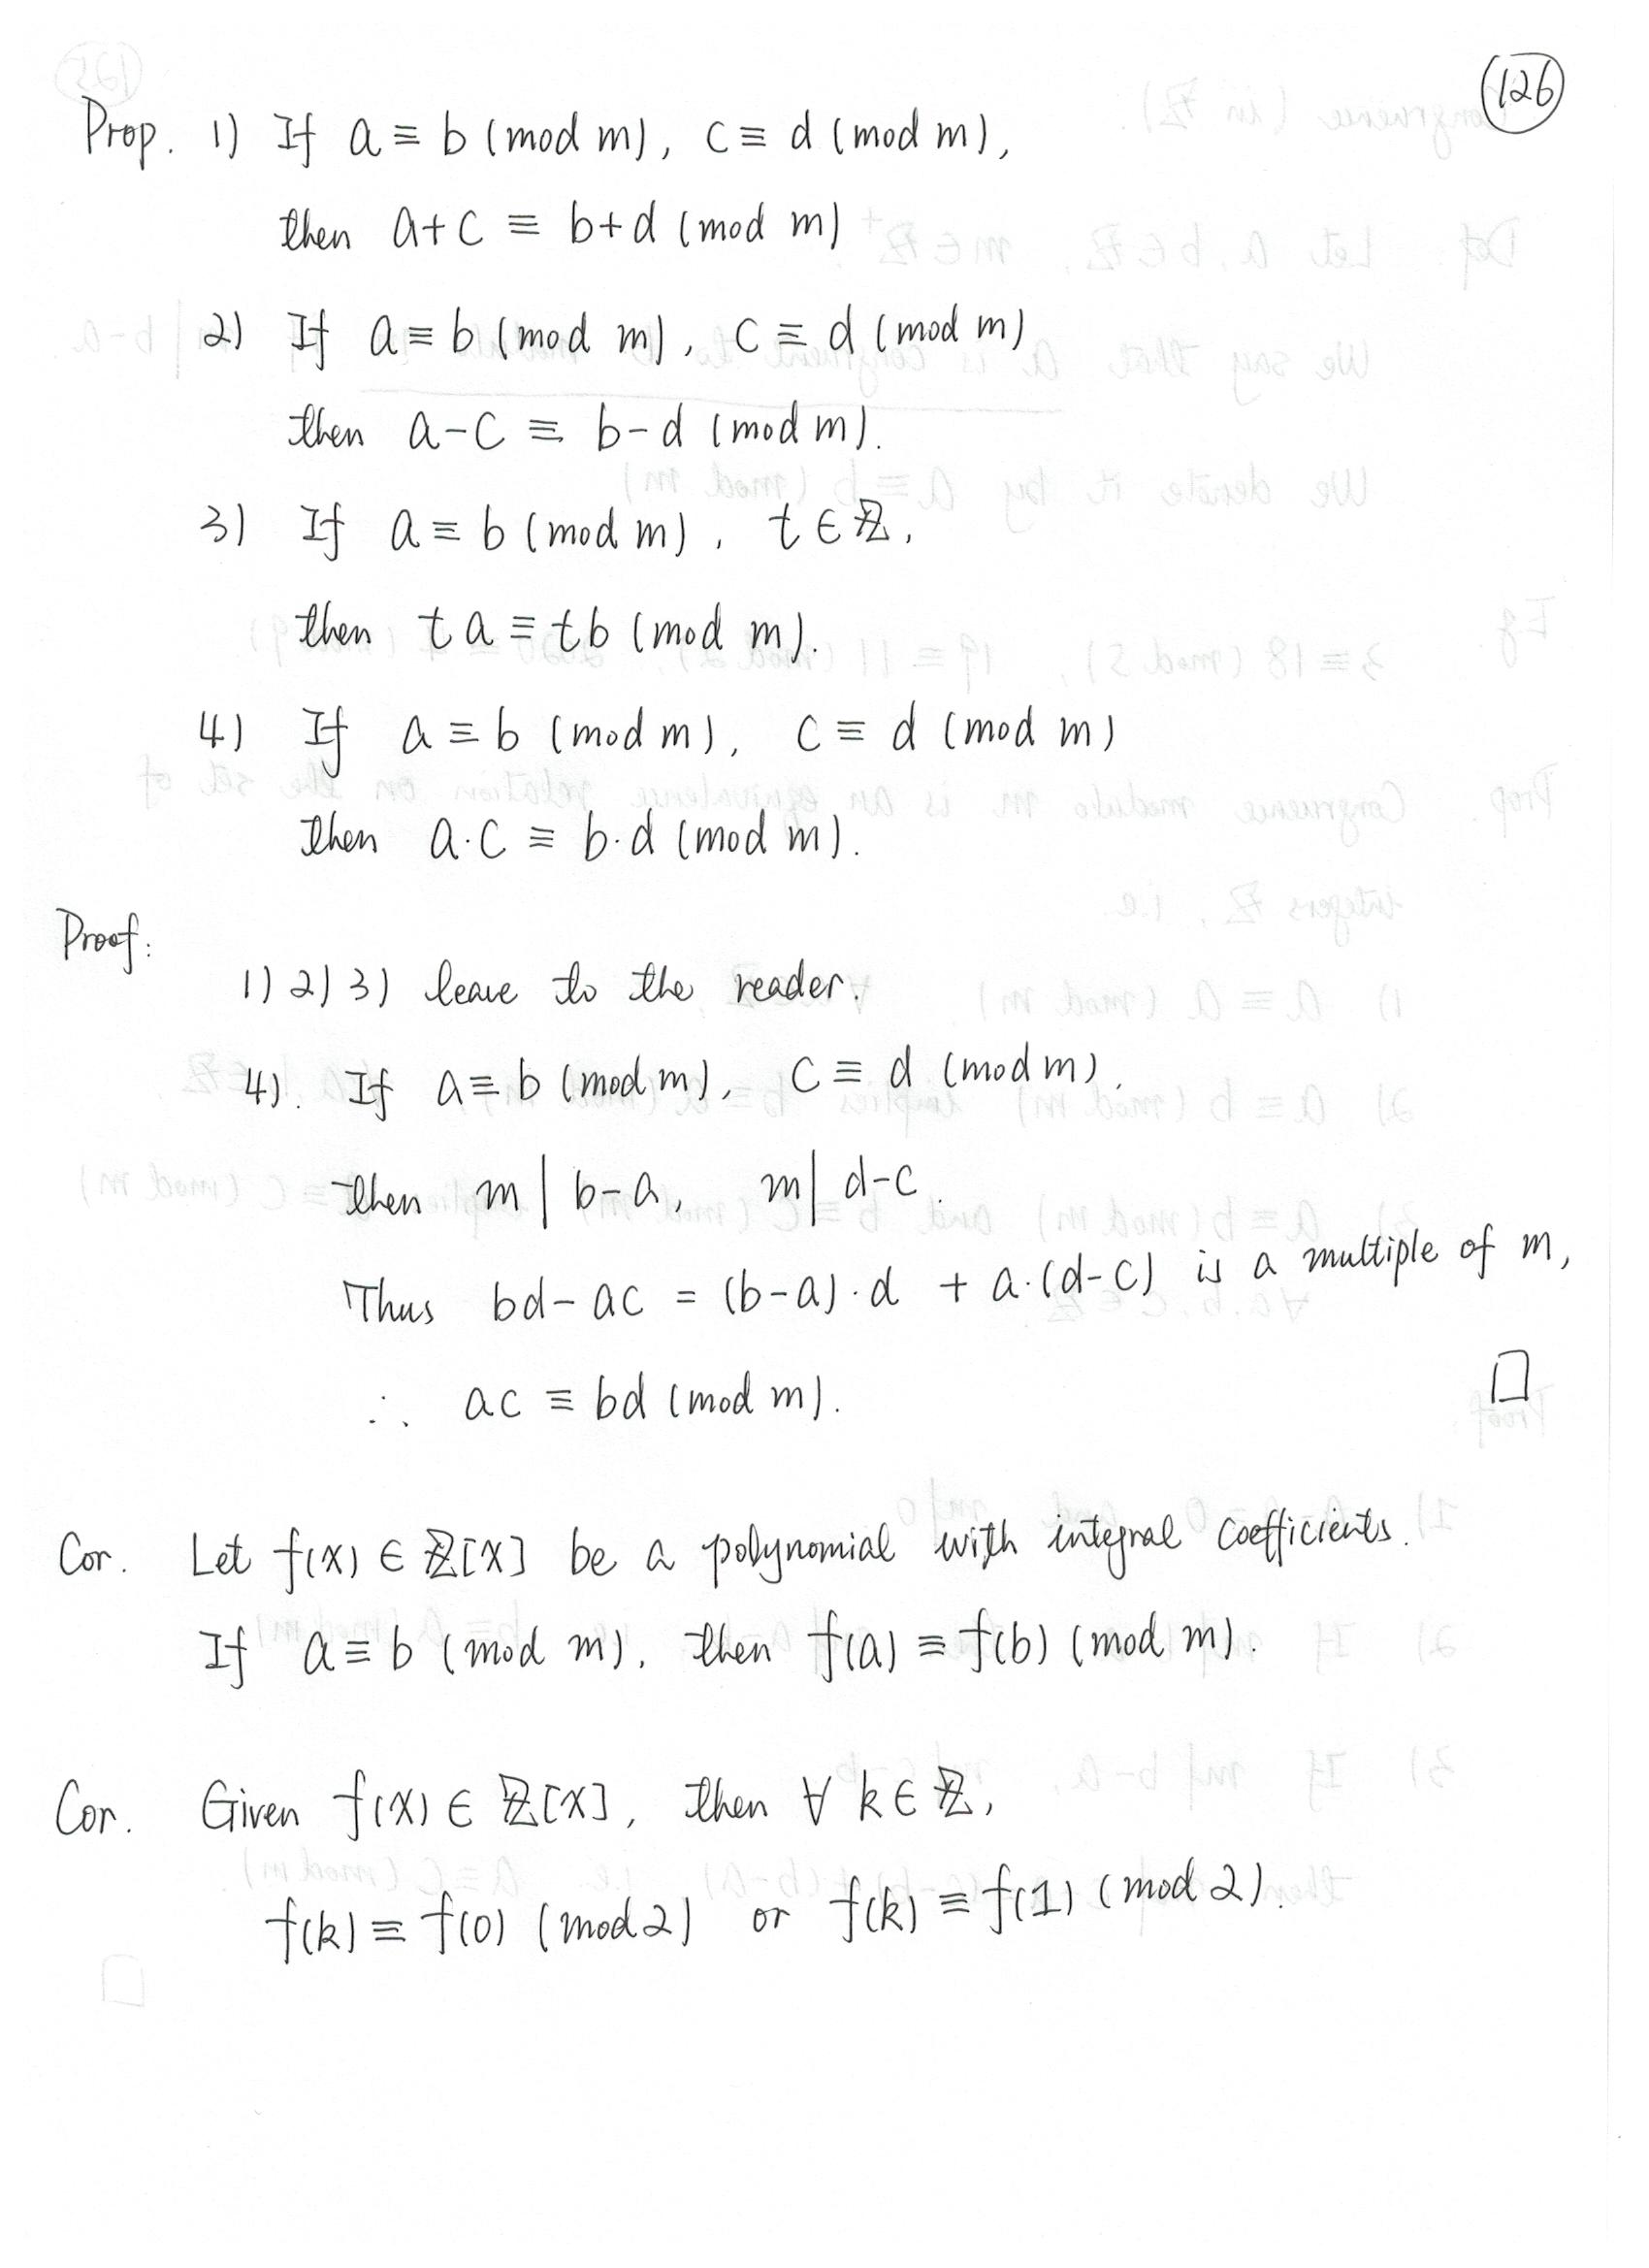 126
Prop. 1) If a ≡ b (mod m), c ≡ d (mod m),
then a+c ≡ b+d (mod m)
2) If a ≡ b (mod m), c ≡ d (mod m)
then a-c ≡ b-d (mod m).
3) If a ≡ b (mod m), t ∈ ℤ,
then ta ≡ tb (mod m).
4) If a ≡ b (mod m), c ≡ d (mod m)
then a·c ≡ b·d (mod m).
Proof:
1) 2) 3) leave to the reader.
4). If a ≡ b (mod m), c ≡ d (mod m),
then m | b-a, m | d-c.
Thus bd-ac = (b-a)·d + a·(d-c) is a multiple of m,
∴ ac ≡ bd (mod m). □
Cor. Let f(x) ∈ ℤ[x] be a polynomial with integral coefficients.
If a ≡ b (mod m), then f(a) ≡ f(b) (mod m).
Cor. Given f(x) ∈ ℤ[x], then ∀ k ∈ ℤ,
f(k) ≡ f(0) (mod 2) or f(k) ≡ f(1) (mod 2).